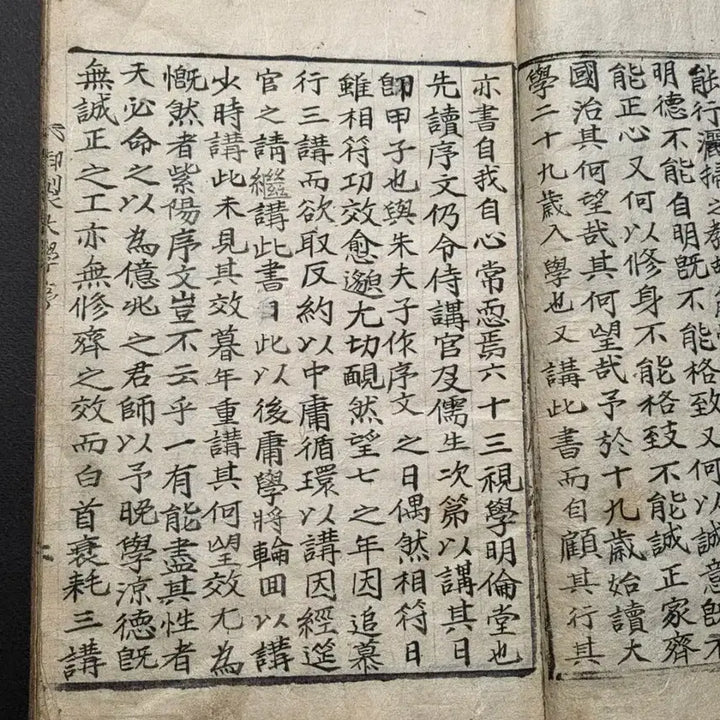 能行灑掃之教
明德不能自明旣不能格致又何以誠意旣不
能正心又何以修身不能格致不能誠正家齊
國治其何望哉其何望哉予於十九歲始讀大
學二十九歲入學也又講此書而自顧其行其
亦書自我自心常恧焉六十三視學明倫堂也
先讀序文仍令侍講官及儒生次第以講其日
卽甲子也與朱夫子作序文之日偶然相符日
雖相符功效愈邈尤切靦然望七之年因追慕
行三講而欲取反約以中庸循環以講因經筵
官之請繼講此書日此以後庸學將輪回以講
少時講此未見其效暮年重講其何望效尤為
慨然者紫陽序文豈不云乎一有能盡其性者
天必命之以為億兆之君師以予晚學涼德旣
無誠正之工亦無修齊之效而白首衰耗三講
御製大學序